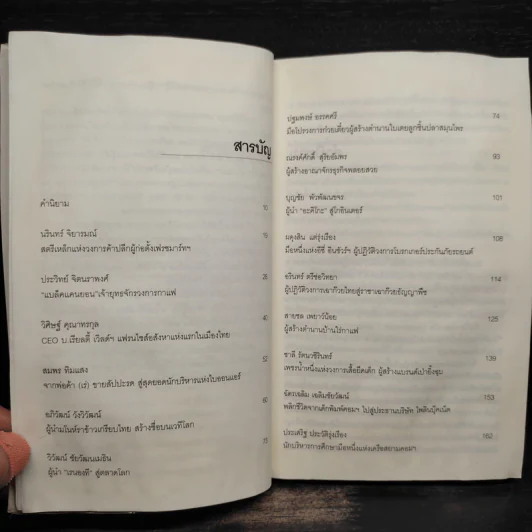 สารบัญ
คำนิยม 10
นรินทร์ จิยารมณ์ 19
สตรีเหล็กแห่งวงการค้าปลีกผู้ก่อตั้งเฟรชมาร์ทฯ
ประวิทย์ จิตนราพงศ์ 28
"แบล็คแคนยอน" เจ้ายุทธจักรวงการกาแฟ
วิศิษฐ์ คุณาทรกุล 40
CEO บ.เรียลตี้ เวิลด์ฯ แฟรนไชส์อสังหาแห่งแรกในเมืองไทย
สมพร ทิมแสง 52
จากพ่อค้า (เร่) ขายสับปะรด สู่สุดยอดนักบริหารแห่งไบออนแอร์
อภิวัฒน์ วังวิวัฒน์
ผู้นำมโนห์ราข้าวเกรียบไทย สร้างชื่อบนเวทีโลก
วิวัฒน์ ชัยวัฒนเมธิน
ผู้นำ "เรนองที" สู่ตลาดโลก
ปฐมพงษ์ อรรคศรี 74
มือโปรวงการก๋วยเตี๋ยวผู้สร้างตำนานใบเตยลูกชิ้นปลาสมุนไพร
ณรงค์ศักดิ์ สุริยอัมพร 93
ผู้สร้างอาณาจักรธุรกิจพลอยสวย
บุญชัย พัวพัฒนขจร 101
ผู้นำ "อะคิโกะ" สู่โกอินเตอร์
ผดุงสิน แต่รุ่งเรือง 108
มือหนึ่งแห่งอีซี่ อินชัวร์ฯ ผู้ปฏิวัติวงการโบรกเกอร์ประกันภัยรถยนต์
อรินทร์ ตรีช่อวิทยา 114
ผู้ปฏิวัติวงการเฉาก๊วยไทยสู่ราชาเฉาก๊วยธัญญาพืช
สายชล เพยาว์น้อย 125
ผู้สร้างตำนานบ้านไร่กาแฟ
ชาลี รัตนวชิรินทร์ 139
เพชรน้ำหนึ่งแห่งวงการเสื้อยืดเด็ก ผู้สร้างแบรนด์เป่ายิ้งฉุบ
ฉัตรเฉลิม เฉลิมชัยวัฒน์ 153
พลิกชีวิตจากเด็กพิมพ์คอมฯ ไปสู่ประธานบริษัท โพลีนบุ๊คเน็ต
ประเสริฐ ประวัติรุ่งเรือง 162
นักบริหารการศึกษามือหนึ่งแห่งเครือสยามคอมฯ